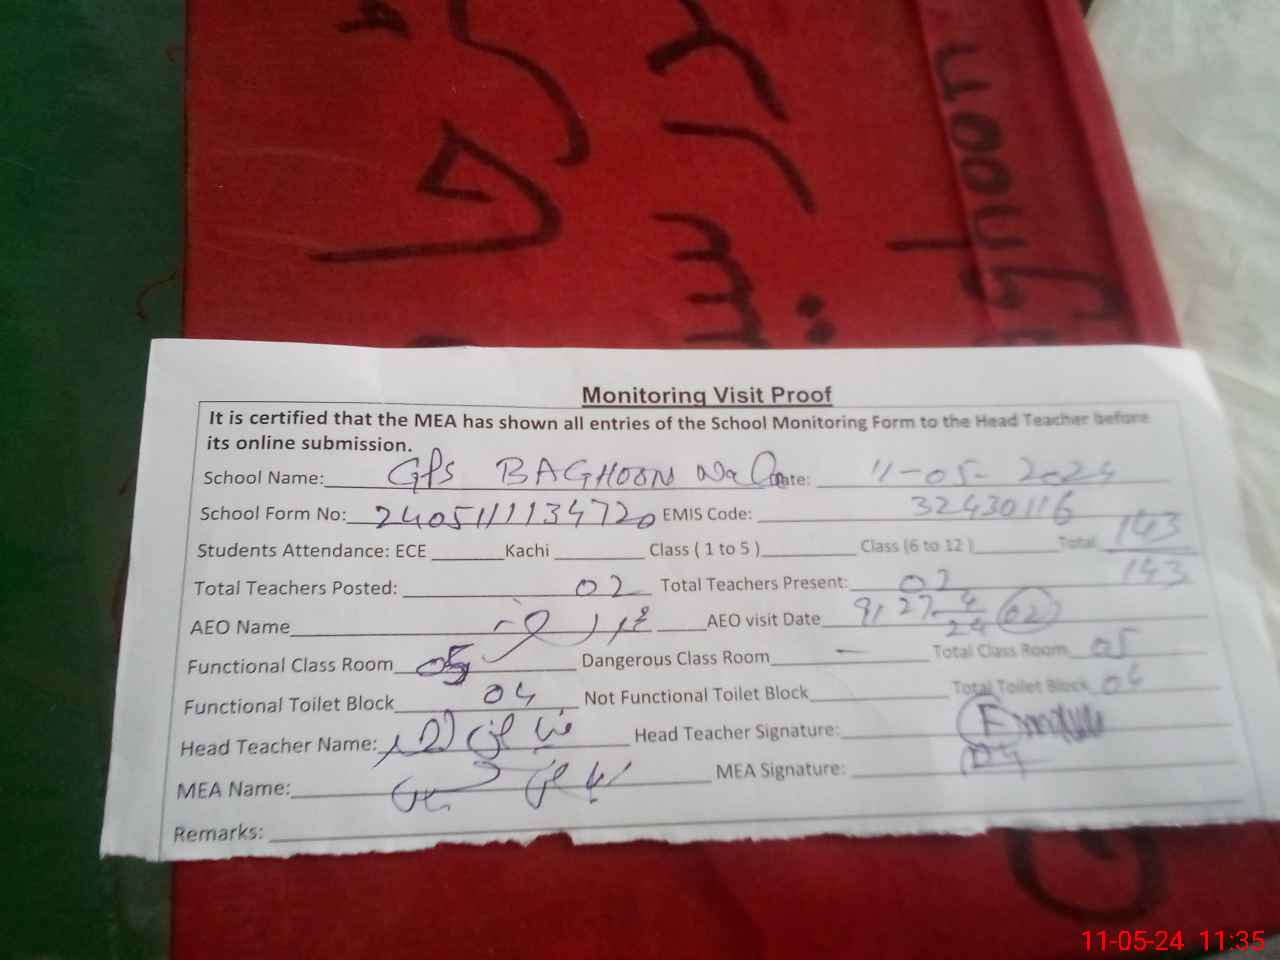 Monitoring Visit Proof
It is certified that the MEA has shown all entries of the School Monitoring Form to the Head Teacher before
its online submission.
School Name: GPS BAGHOON Wala Date: 11-05-2024
School Form No: 2405111134720 EMIS Code: 32430116
Students Attendance: ECE Kachi Class ( 1 to 5 ) Class (6 to 12 ) Total 143
143
Total Teachers Posted: 02 Total Teachers Present: 02
AEO Name AEO visit Date 9, 27 4/24 02
Functional Class Room 05 Dangerous Class Room — Total Class Room 05
Functional Toilet Block 04 Not Functional Toilet Block Total Toilet Block 04
Head Teacher Name: Head Teacher Signature:
MEA Name: MEA Signature:
Remarks:
11-05-24 11:35